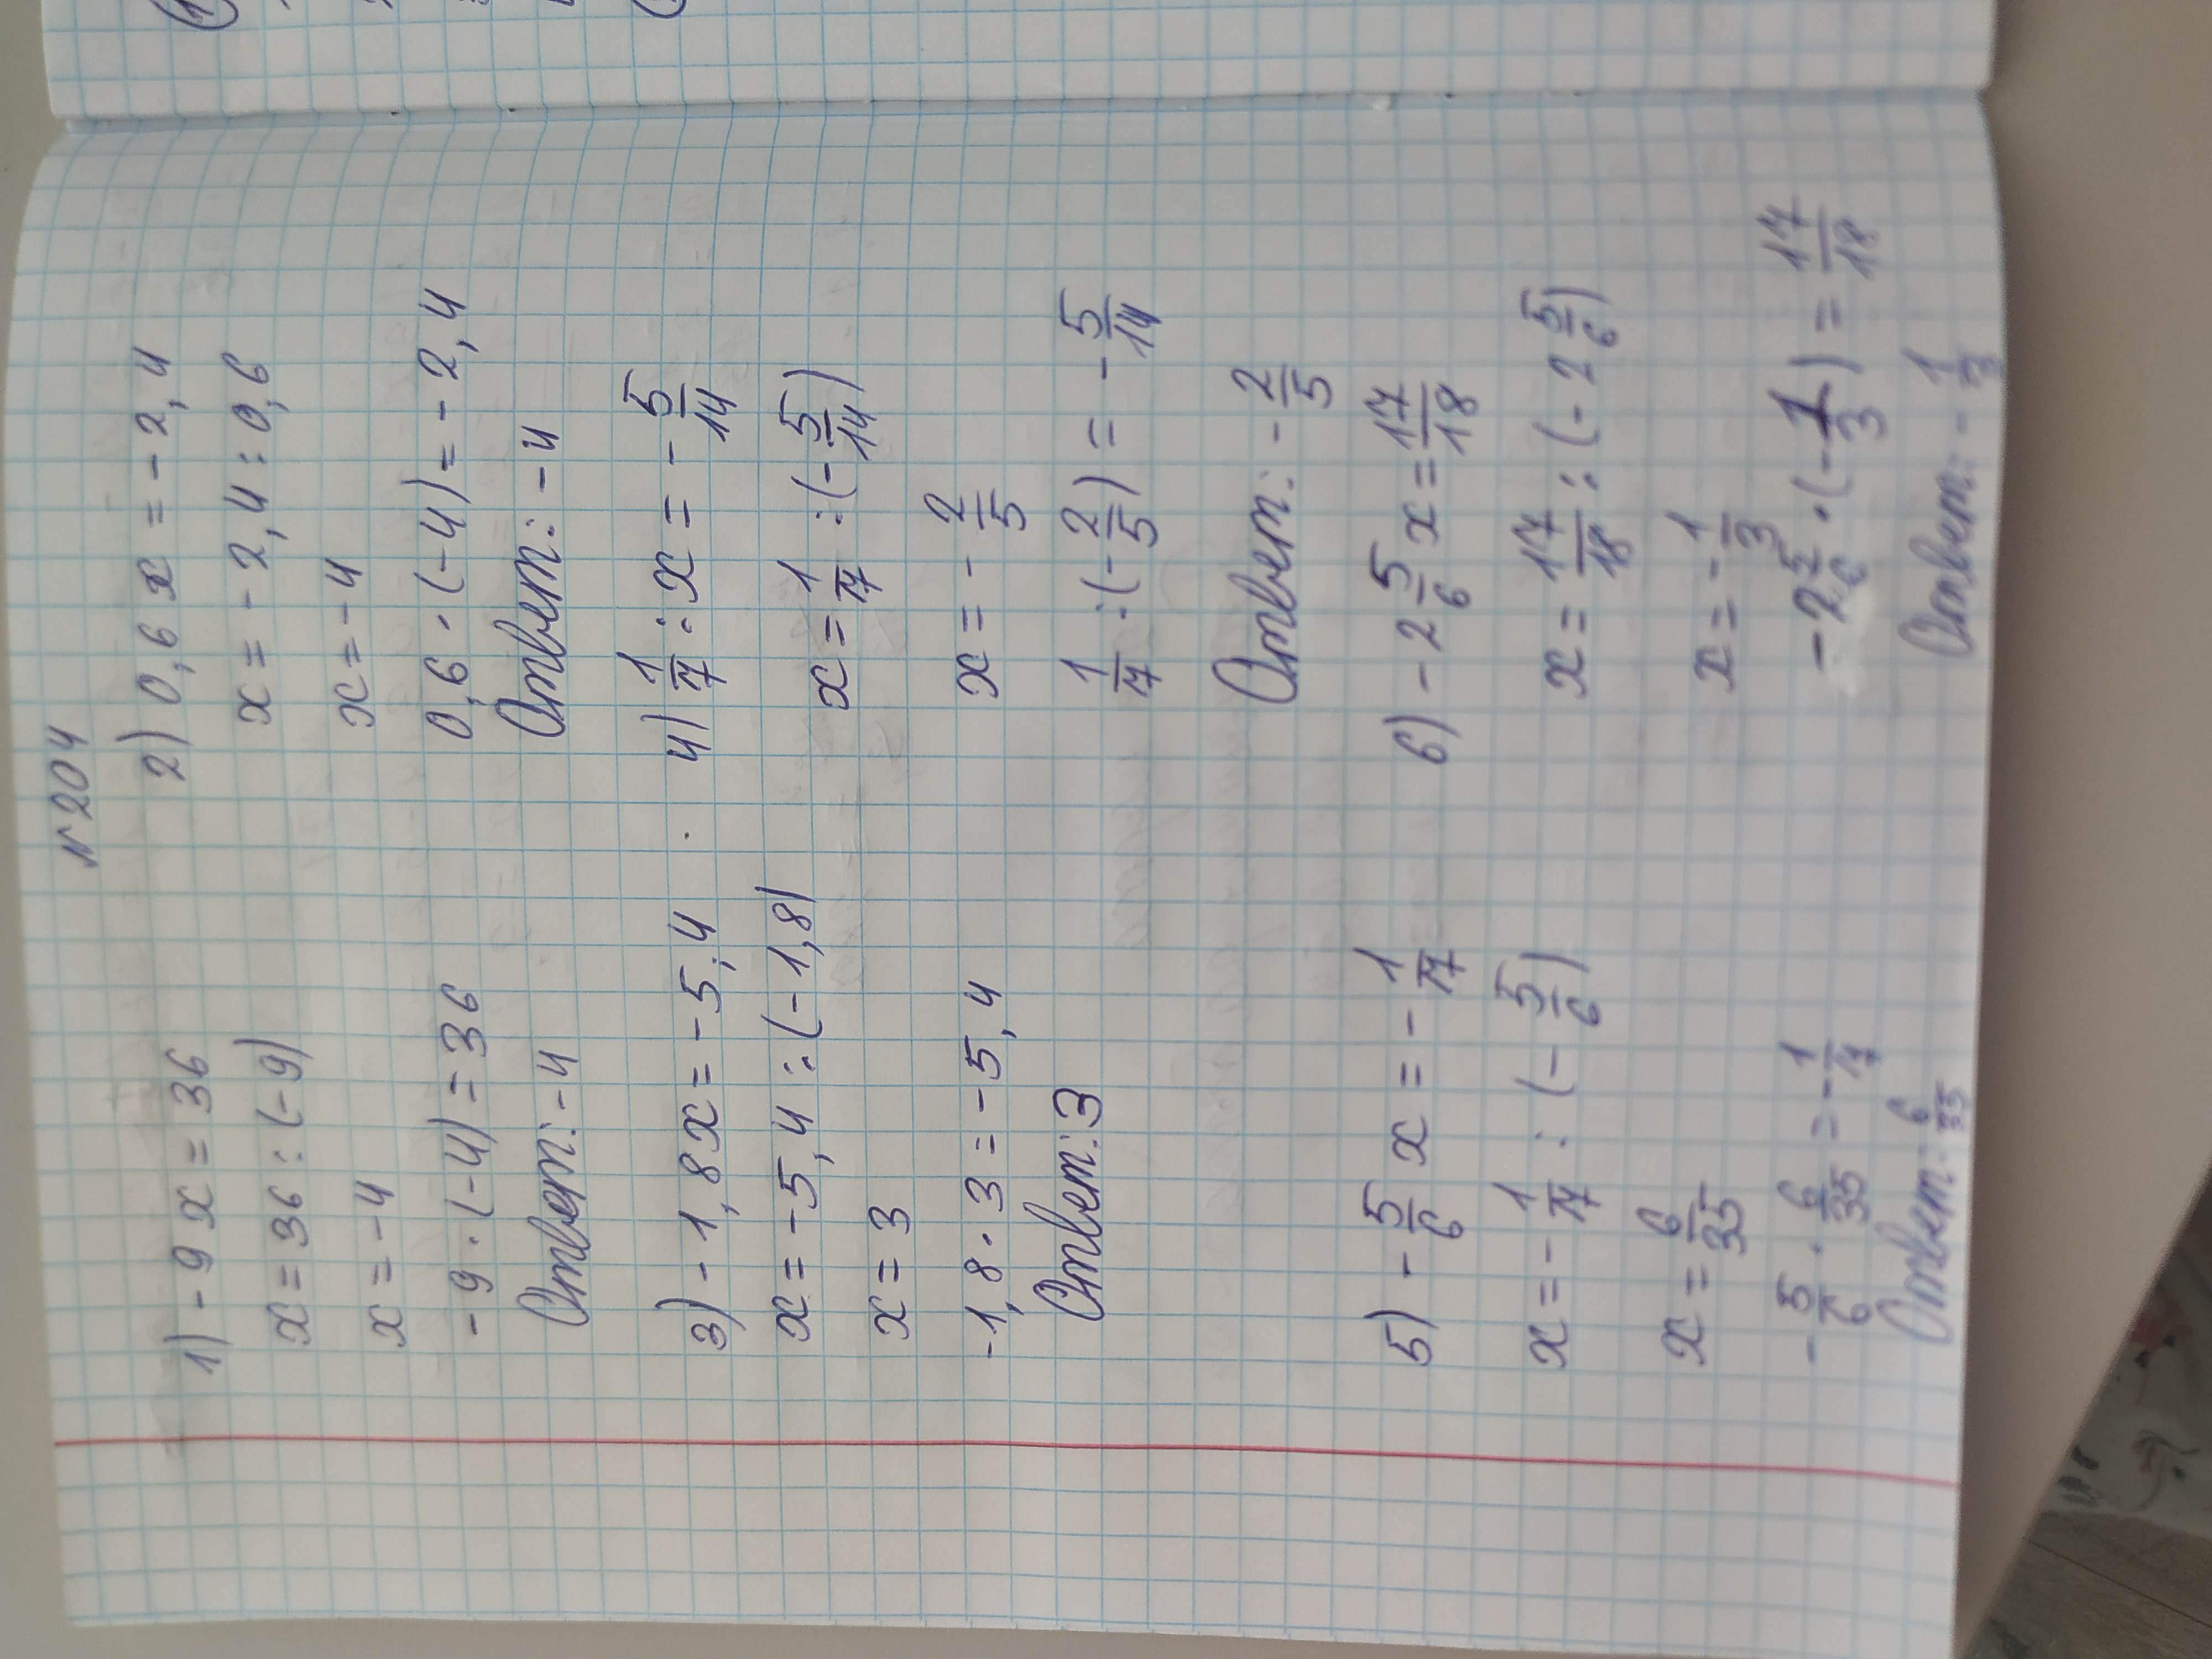 №204
1) -9x = 36
x = 36 : (-9)
x = -4
-9 · (-4) = 36
Ответ: -4
2) 0,6x = -2,4
x = -2,4 : 0,6
x = -4
0,6 · (-4) = -2,4
Ответ: -4
3) -1,8x = -5,4
x = -5,4 : (-1,8)
x = 3
-1,8 · 3 = -5,4
Ответ: 3
4) 1/7 : x = -5/14
x = 1/7 : (-5/14)
x = -2/5
1/7 : (-2/5) = -5/14
Ответ: -2/5
5) -5/6 x = -1/7
x = -1/7 : (-5/6)
x = 6/35
-5/6 · 6/35 = -1/7
Ответ: 6/35
6) -2 5/6 x = 17/18
x = 17/18 : (-2 5/6)
x = -1/3
-2 5/6 · (-1/3) = 17/18
Ответ: -1/3